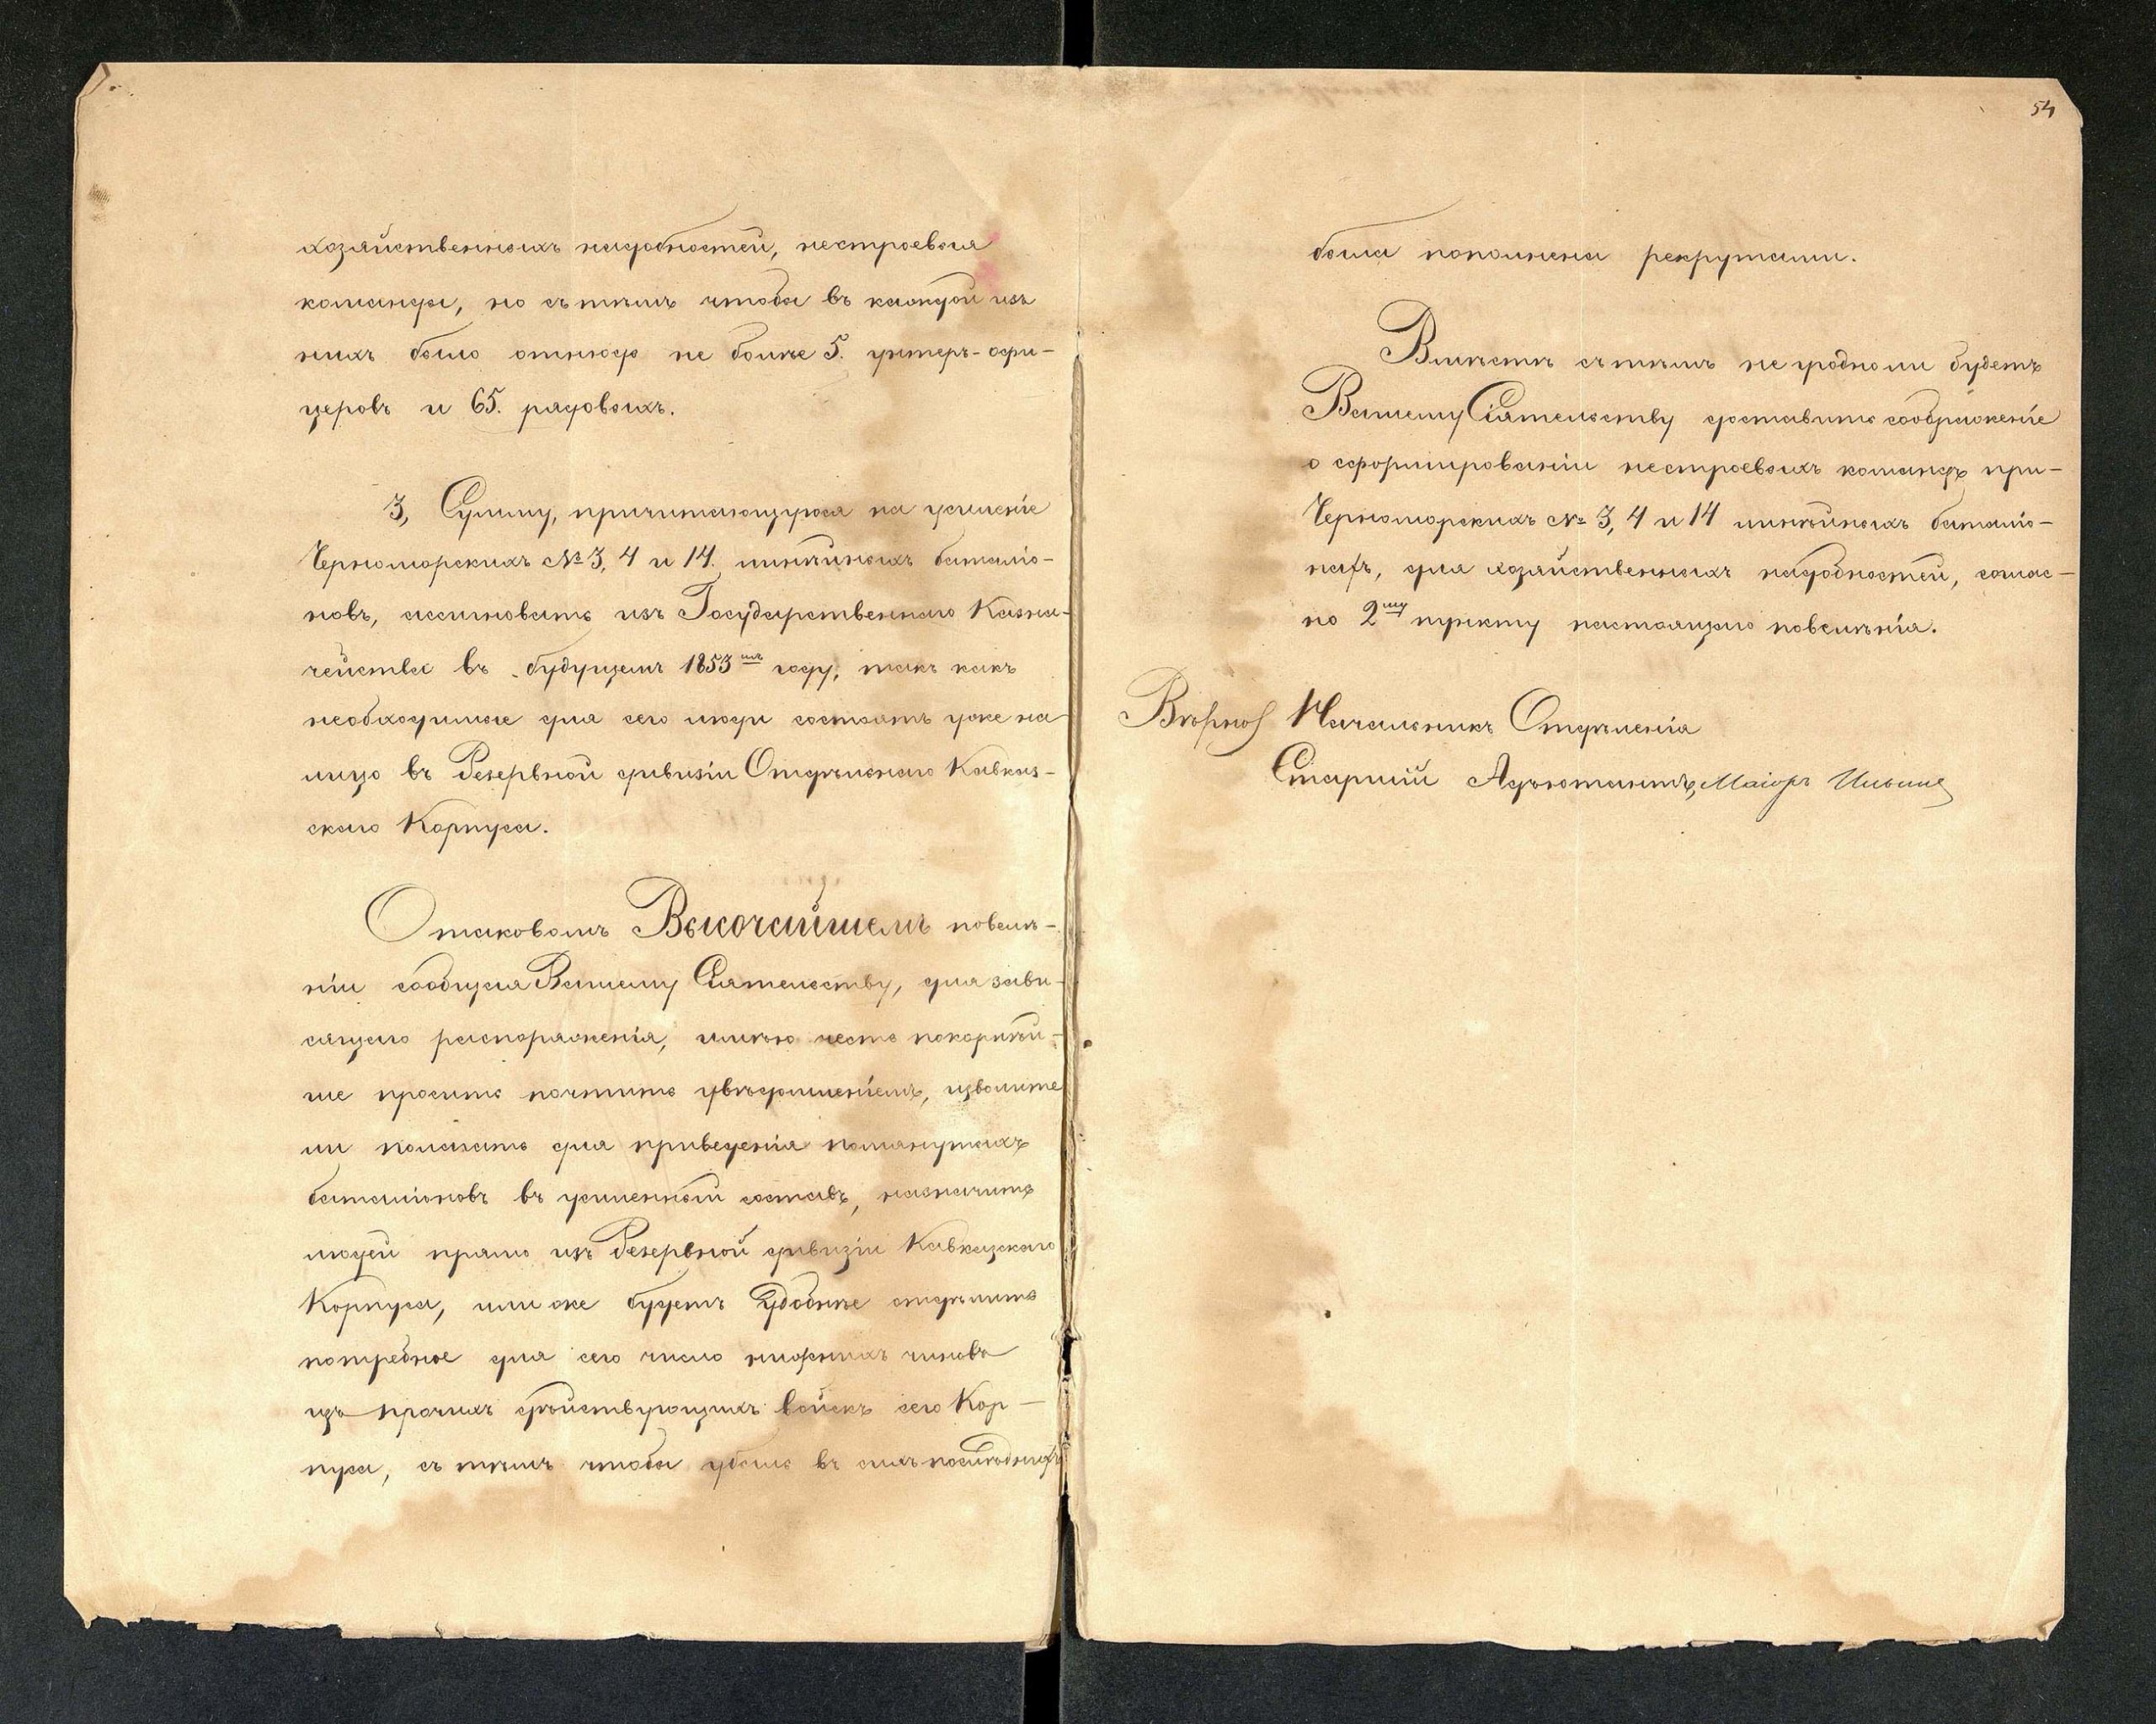 хозяйственныхъ надобностей, нестроевыя
команды, но съ тѣмъ чтобы въ каждой изъ
нихъ было отнюдь не болѣе 5. унтеръ-офи-
церовъ и 65. рядовыхъ.
3, Сумму, причитающуюся на усиленіе
Черноморскихъ № 3, 4 и 14. линѣйныхъ баталіо-
новъ, ассигновать изъ Государственнаго Казна-
чейства въ будущемъ 1853мъ году, такъ какъ
необходимые для сего люди состоятъ уже на-
лицо въ Резервной дивизіи Отдѣльнаго Кавказ-
скаго Корпуса.
О таковомъ Высочайшемъ повелѣ-
ніи сообщая Вашему Сіятельству, для зави-
сящаго распоряженія, имѣю честь покорнѣй-
ше просить почтить увѣдомленіемъ, изволите
ли полагать для приведенія помянутыхъ
баталіоновъ въ усиленный составъ, назначить
людей прямо изъ Резервной дивизіи Кавказскаго
Корпуса, или же будетъ удобнѣе отдѣлить
потребное для сего число нижнихъ чиновъ
изъ прочихъ дѣйствующихъ войскъ сего Кор-
пуса, съ тѣмъ чтобы убыль въ сихъ послѣднихъ
54
была пополнена рекрутами.
Вмѣстѣ съ тѣмъ не угодно ли будетъ
Вашему Сіятельству доставить соображеніе
о сформированіи нестроевыхъ командъ при-
Черноморскихъ № 3, 4 и 14 линѣйныхъ баталіо-
нахъ, для хозяйственныхъ надобностей, соглас-
но 2му пункту настоящаго повелѣнія.
Вѣрно: Начальникъ Отдѣленія
Старшій Адъютантъ, Маіоръ